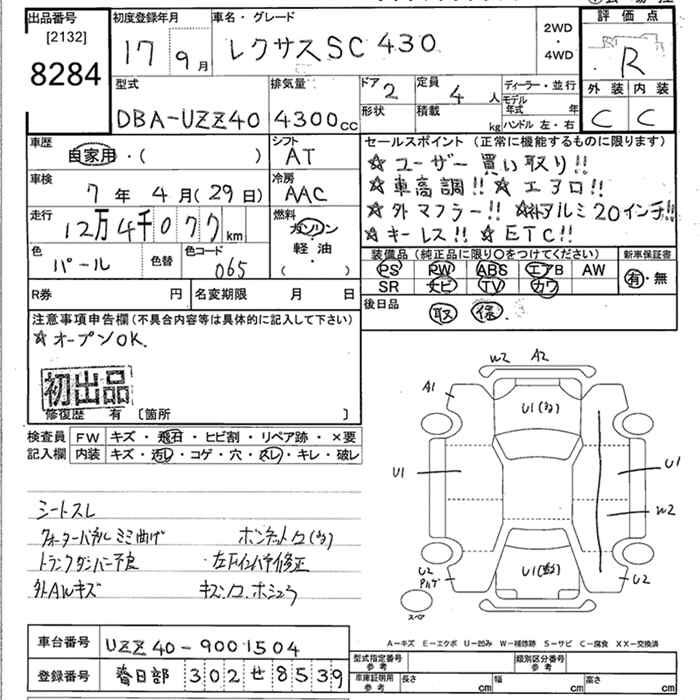 出品番号 初度登録年月 車名・グレード 2WD 評価点
[2132] 17 9月 レクサスSC 430 ・ R
8284 4WD
型式 排気量 ドア 2 定員 4 人 ディーラー・並行 外装 内装
DBA-UZZ40 4300cc 形状 積載 kg モデル年式 年 C C
ハンドル 左・右
車歴 シフト セールスポイント (正常に機能するものに限ります)
自家用・( ) AT ☆ユーザー買い取り!!
車検 冷房 ☆車高調!! ☆エアロ!!
7年 4月(29日) AAC ☆外マフラー!! ☆外アルミ20インチ!!
走行 12万4千077km 燃料 ☆キーレス!! ☆ETC!!
ガソリン
軽・油
( )
色 パール 色替 色コード 065
装備品(純正品に限り〇をつけてください) 新車保証書
PS PW ABS エアB AW 有・無
SR ナビ TV カワ
R券 円 名変期限 月 日 後日品 取 保
注意事項申告欄(不具合内容等は具体的に記入して下さい)
☆オープンOK.
初出品
修復歴 有 〔箇所 〕
検査員 FW キズ・飛石・ヒビ割・リペア跡・×要
記入欄 内装 キズ・汚レ・コゲ・穴・スレ・キレ・破レ
W2 A2
A1
U1(多)
U1 U1
W2
U2 U2
スペア
シートスレ
クォーターパネルミミ曲げ
トランクダンパー不良
外AWキズ
A-キズ E-エクボ U-凹み W-補修跡 S-サビ C-腐食 XX-交換済
車台番号 UZZ40-9001504
登録番号 春日部 302 せ 8539
型式指定番号 参考 類別区分番号 参考
車庫証明用 参考 長さ cm 幅 cm 高さ cm